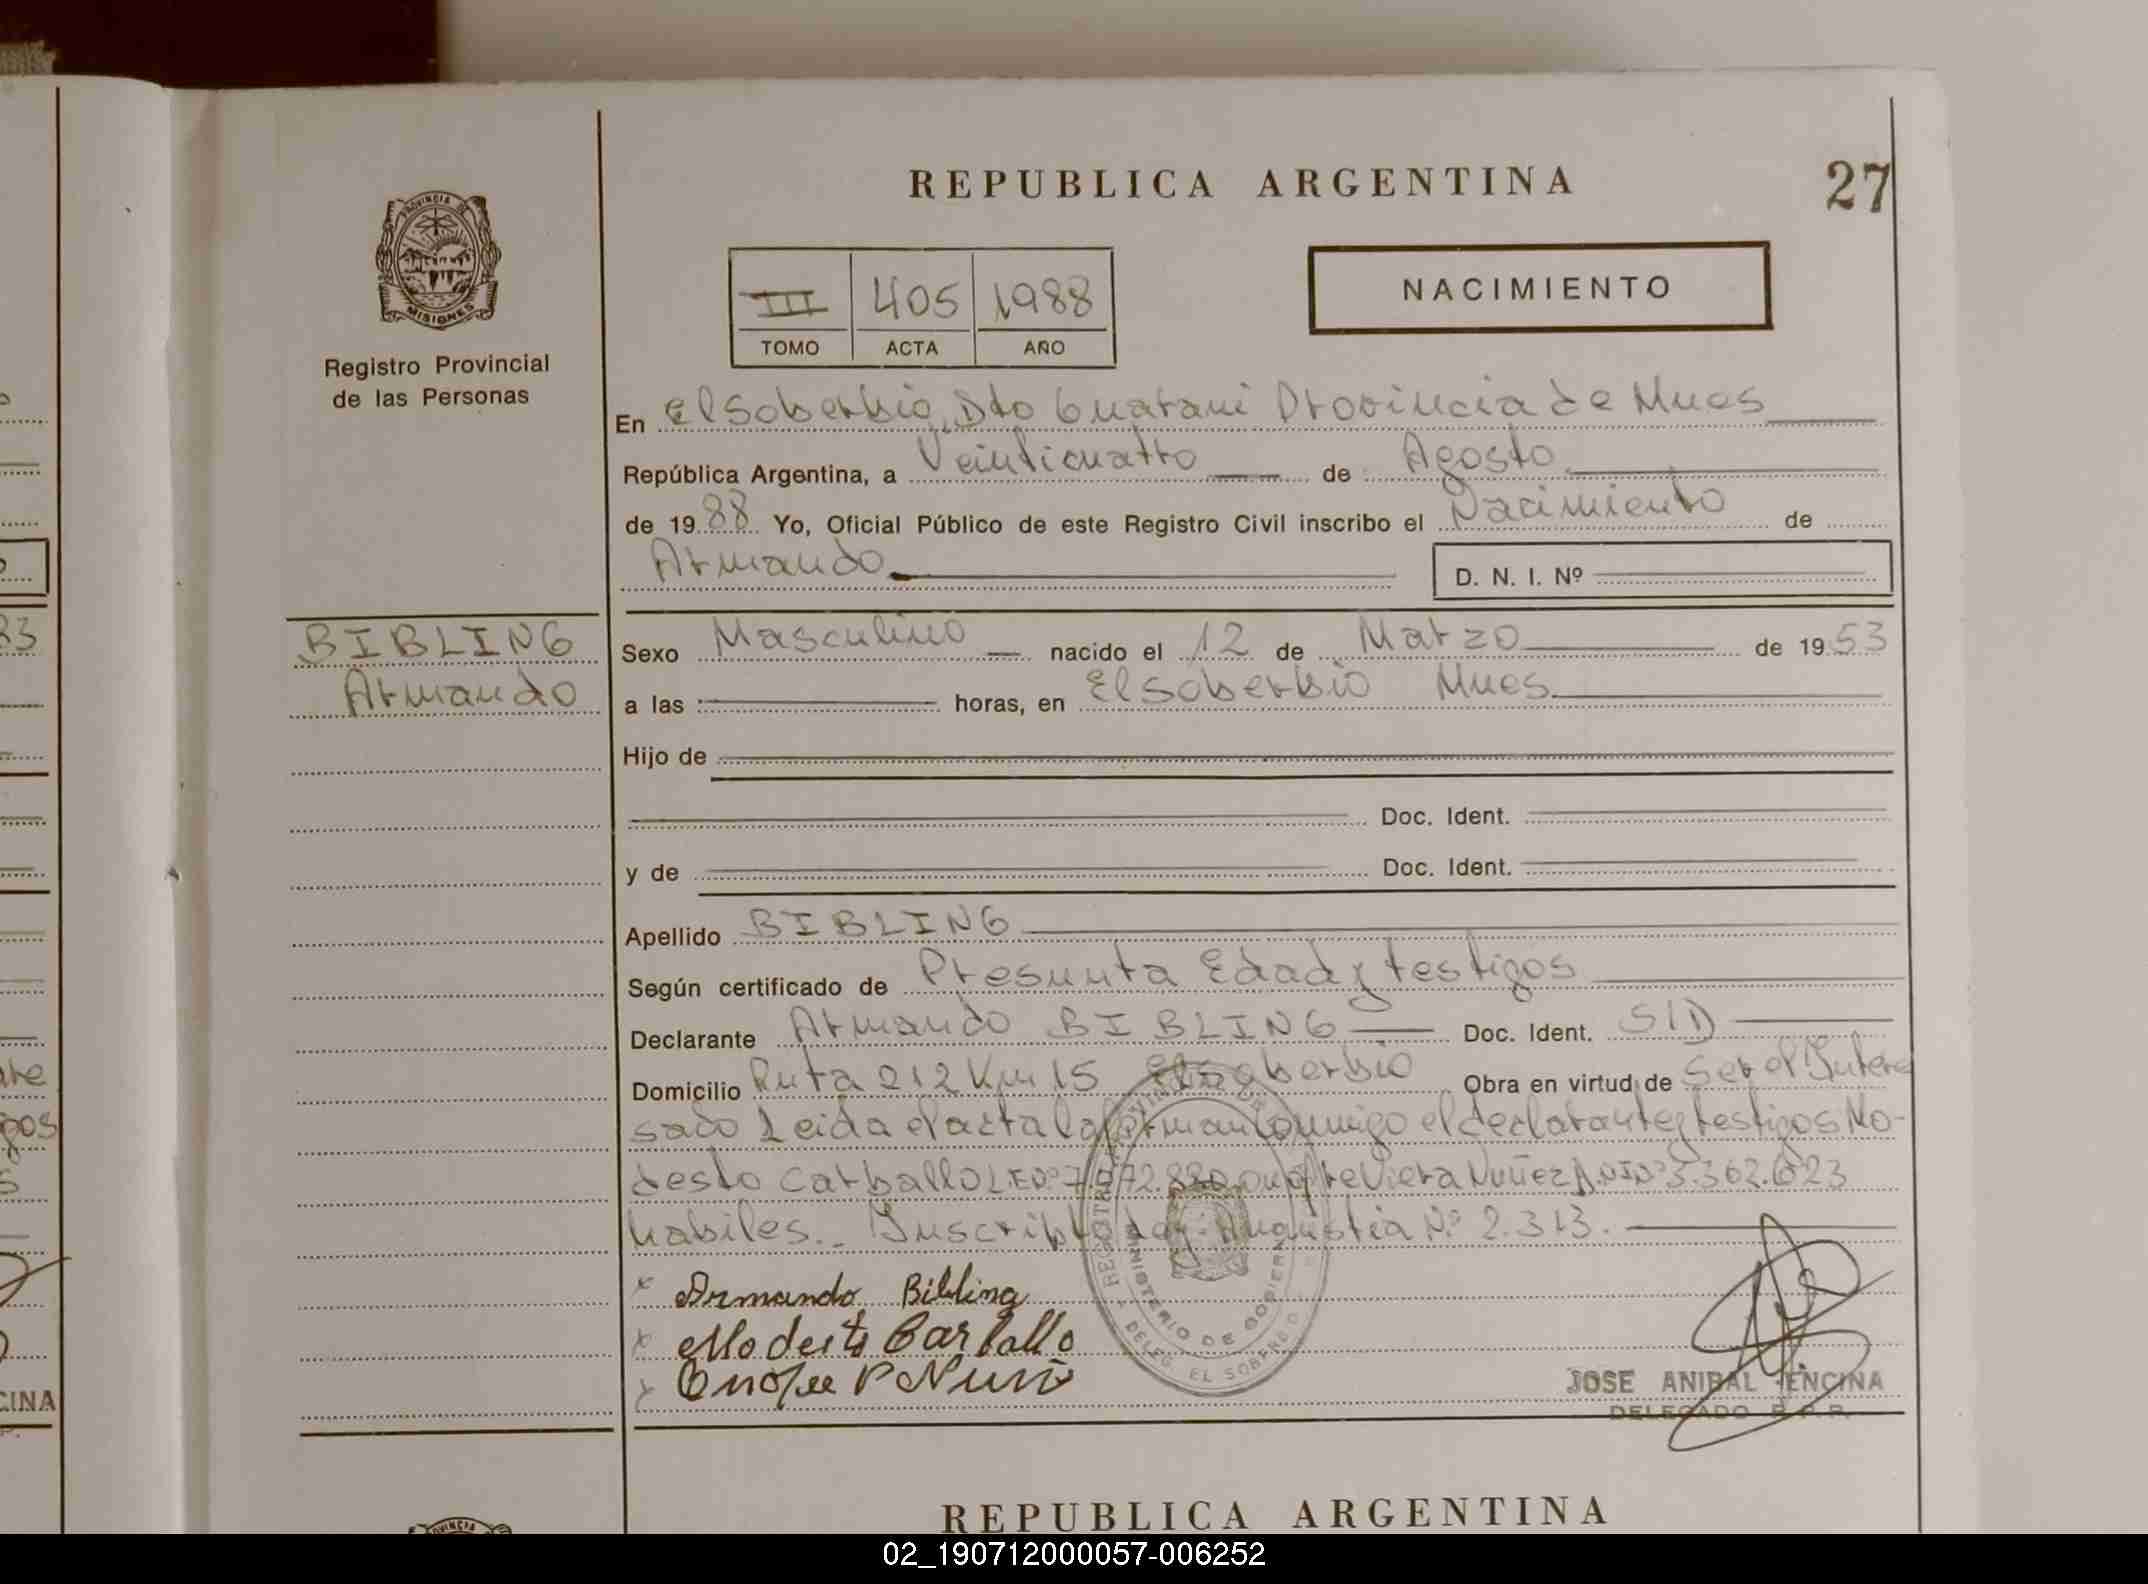 REPUBLICA ARGENTINA
27
PROVINCIA DE
MISIONES
Registro Provincial
de las Personas
III 405 1988
TOMO ACTA AÑO
NACIMIENTO
En El Soberbio, Dto Guarani Provincia de Mnes
República Argentina, a Veinticuatro de Agosto
de 1988 Yo, Oficial Público de este Registro Civil inscribo el Nacimiento de
Armando D. N. I. Nº
BIBLING
Armando
Sexo Masculino nacido el 12 de Marzo de 1953
a las horas, en El Soberbio Mnes
Hijo de
Doc. Ident.
y de Doc. Ident.
Apellido BIBLING
Según certificado de Presunta Edad y testigos
Declarante Armando BIBLING Doc. Ident. S/D
Domicilio Ruta 212 Km 15 El Soberbio Obra en virtud de Ser el Intere
sado Leida el acta la firman conmigo el declarante y testigos Mo-
desto Carballo L.E Nº 7.972.830 Viera Nuñez D.N.I Nº 3.362.623
habiles._ Inscribto Ley. Angustia Nº 2.313.
x Armando Bibling
x Modesto Carballo
x
REGISTRO
MINISTERIO DE GOBIERNO
DELEG. EL SOBERBIO
JOSE ANIBAL ENCINA
DELEGADO R.P.P.
REPUBLICA ARGENTINA
02_190712000057-006252